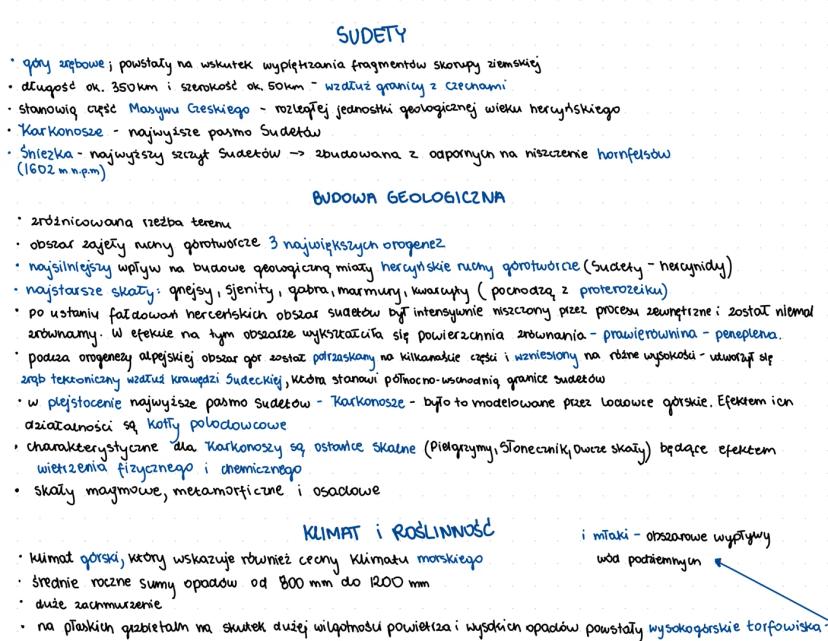 SUDETY
• góry zrębowe; powstały na wskutek wypiętrzania fragmentów skorupy ziemskiej
• długość ok. 350km i szerokość ok. 50km - wzdłuż granicy z Czechami
• stanowią część Masywu Czeskiego - rozległej jednostki geologicznej wieku hercyńskiego
• Karkonosze - najwyższe pasmo Sudetów
• Śnieżka - najwyższy szczyt Sudetów → zbudowana z odpornych na niszczenie hornfelsów
(1602 m n.p.m)
BUDOWA GEOLOGICZNA
• zróżnicowana rzeźba terenu
• obszar zajęły ruchy górotwórcze 3 największych orogenez
• najsilniejszy wpływ na budowę geologiczną miały hercyńskie ruchy górotwórcze (Sudety - hercynidy)
• najstarsze skały: gnejsy, sjenity, gabra, marmury, kwarcyty (pochodzą z proterozoiku)
• po ustaniu fałdowań herceńskich obszar sudetów był intensywnie niszczony przez procesu zewnętrzne i został niemal
zrównamy. W efekcie na tym obszarze wykształciła się powierzchnia zrównania - prawierównina - peneplena.
• podcza orogenezy alpejskiej obszar gór został potrzaskany na kilkanaście części i wzniesiony na różne wysokości - utworzył się
zrąb tektoniczny wzdłuż krawędzi Sudeckiej, która stanowi północno-wschodnią granice sudetów
• w plejstocenie najwyższe pasmo Sudetów - Karkonosze - było to modelowane przez lodowce górskie. Efektem ich
działalności są kotły polodowcowe
• charakterystyczne dla Karkonoszy są ostańce skalne (Pielgrzymy, Słonecznik, Owcze skały) będące efektem
wietrzenia fizycznego i chemicznego
• skały magmowe, metamorficzne i osadowe
KLIMAT i ROŚLINNOŚĆ
i młaki - obszarowe wypływy
wód podziemnych
• klimat górski, który wskazuje również cechy klimatu morskiego
• średnie roczne sumy opadów od 800 mm do 1200 mm
• duże zachmurzenie
• na płaskich grzbietach na skutek dużej wilgotności powietrza i wysokich opadów powstały wysokogórskie torfowiska -